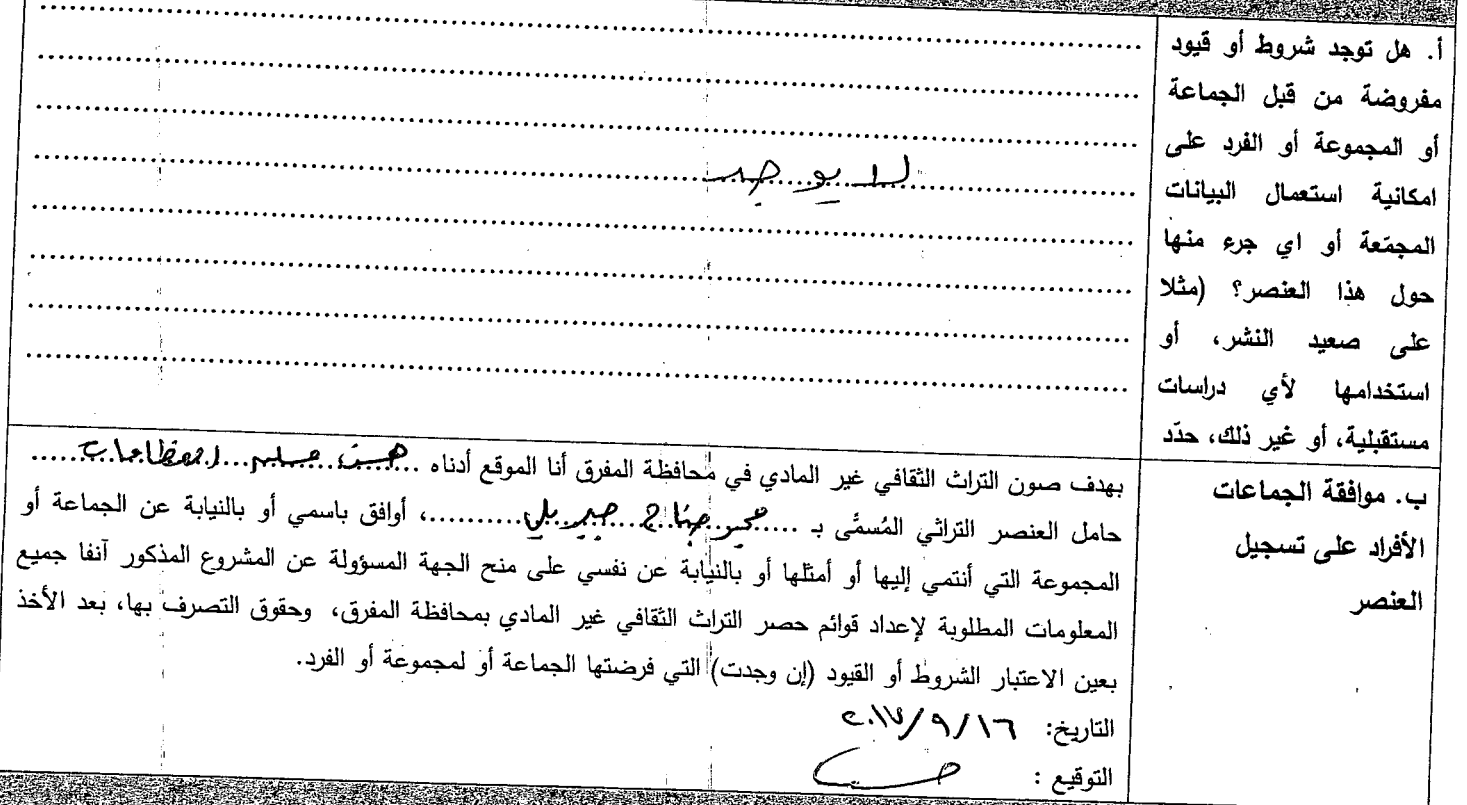 أ. هل توجد شروط أو قيود
مفروضة من قبل الجماعة
أو المجموعة أو الفرد على
امكانية استعمال البيانات
المجمّعة أو اي جرء منها
حول هذا العنصر؟ (مثلا
على صعيد النشر، أو
استخدامها لأي دراسات
مستقبلية، أو غير ذلك، حدّد
لا يوجد
ب. موافقة الجماعات
الأفراد على تسجيل
العنصر
بهدف صون التراث الثقافي غير المادي في محافظة المفرق أنا الموقع أدناه
حامل العنصر التراثي المُسمَّى بـ ، أوافق باسمي أو بالنيابة عن الجماعة أو
المجموعة التي أنتمي إليها أو أمثلها أو بالنيابة عن نفسي على منح الجهة المسؤولة عن المشروع المذكور آنفا جميع
المعلومات المطلوبة لإعداد قوائم حصر التراث الثقافي غير المادي بمحافظة المفرق، وحقوق التصرف بها، بعد الأخذ
بعين الاعتبار الشروط أو القيود (إن وجدت) التي فرضتها الجماعة أو لمجموعة أو الفرد.
التاريخ: ٢٠١٧/٩/١٦
التوقيع :